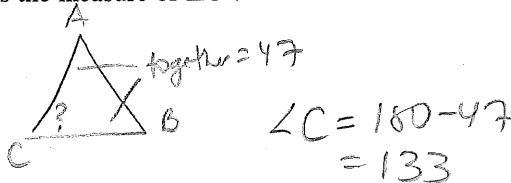 A
together = 47
?
B
C
∠C = 180-47
= 133